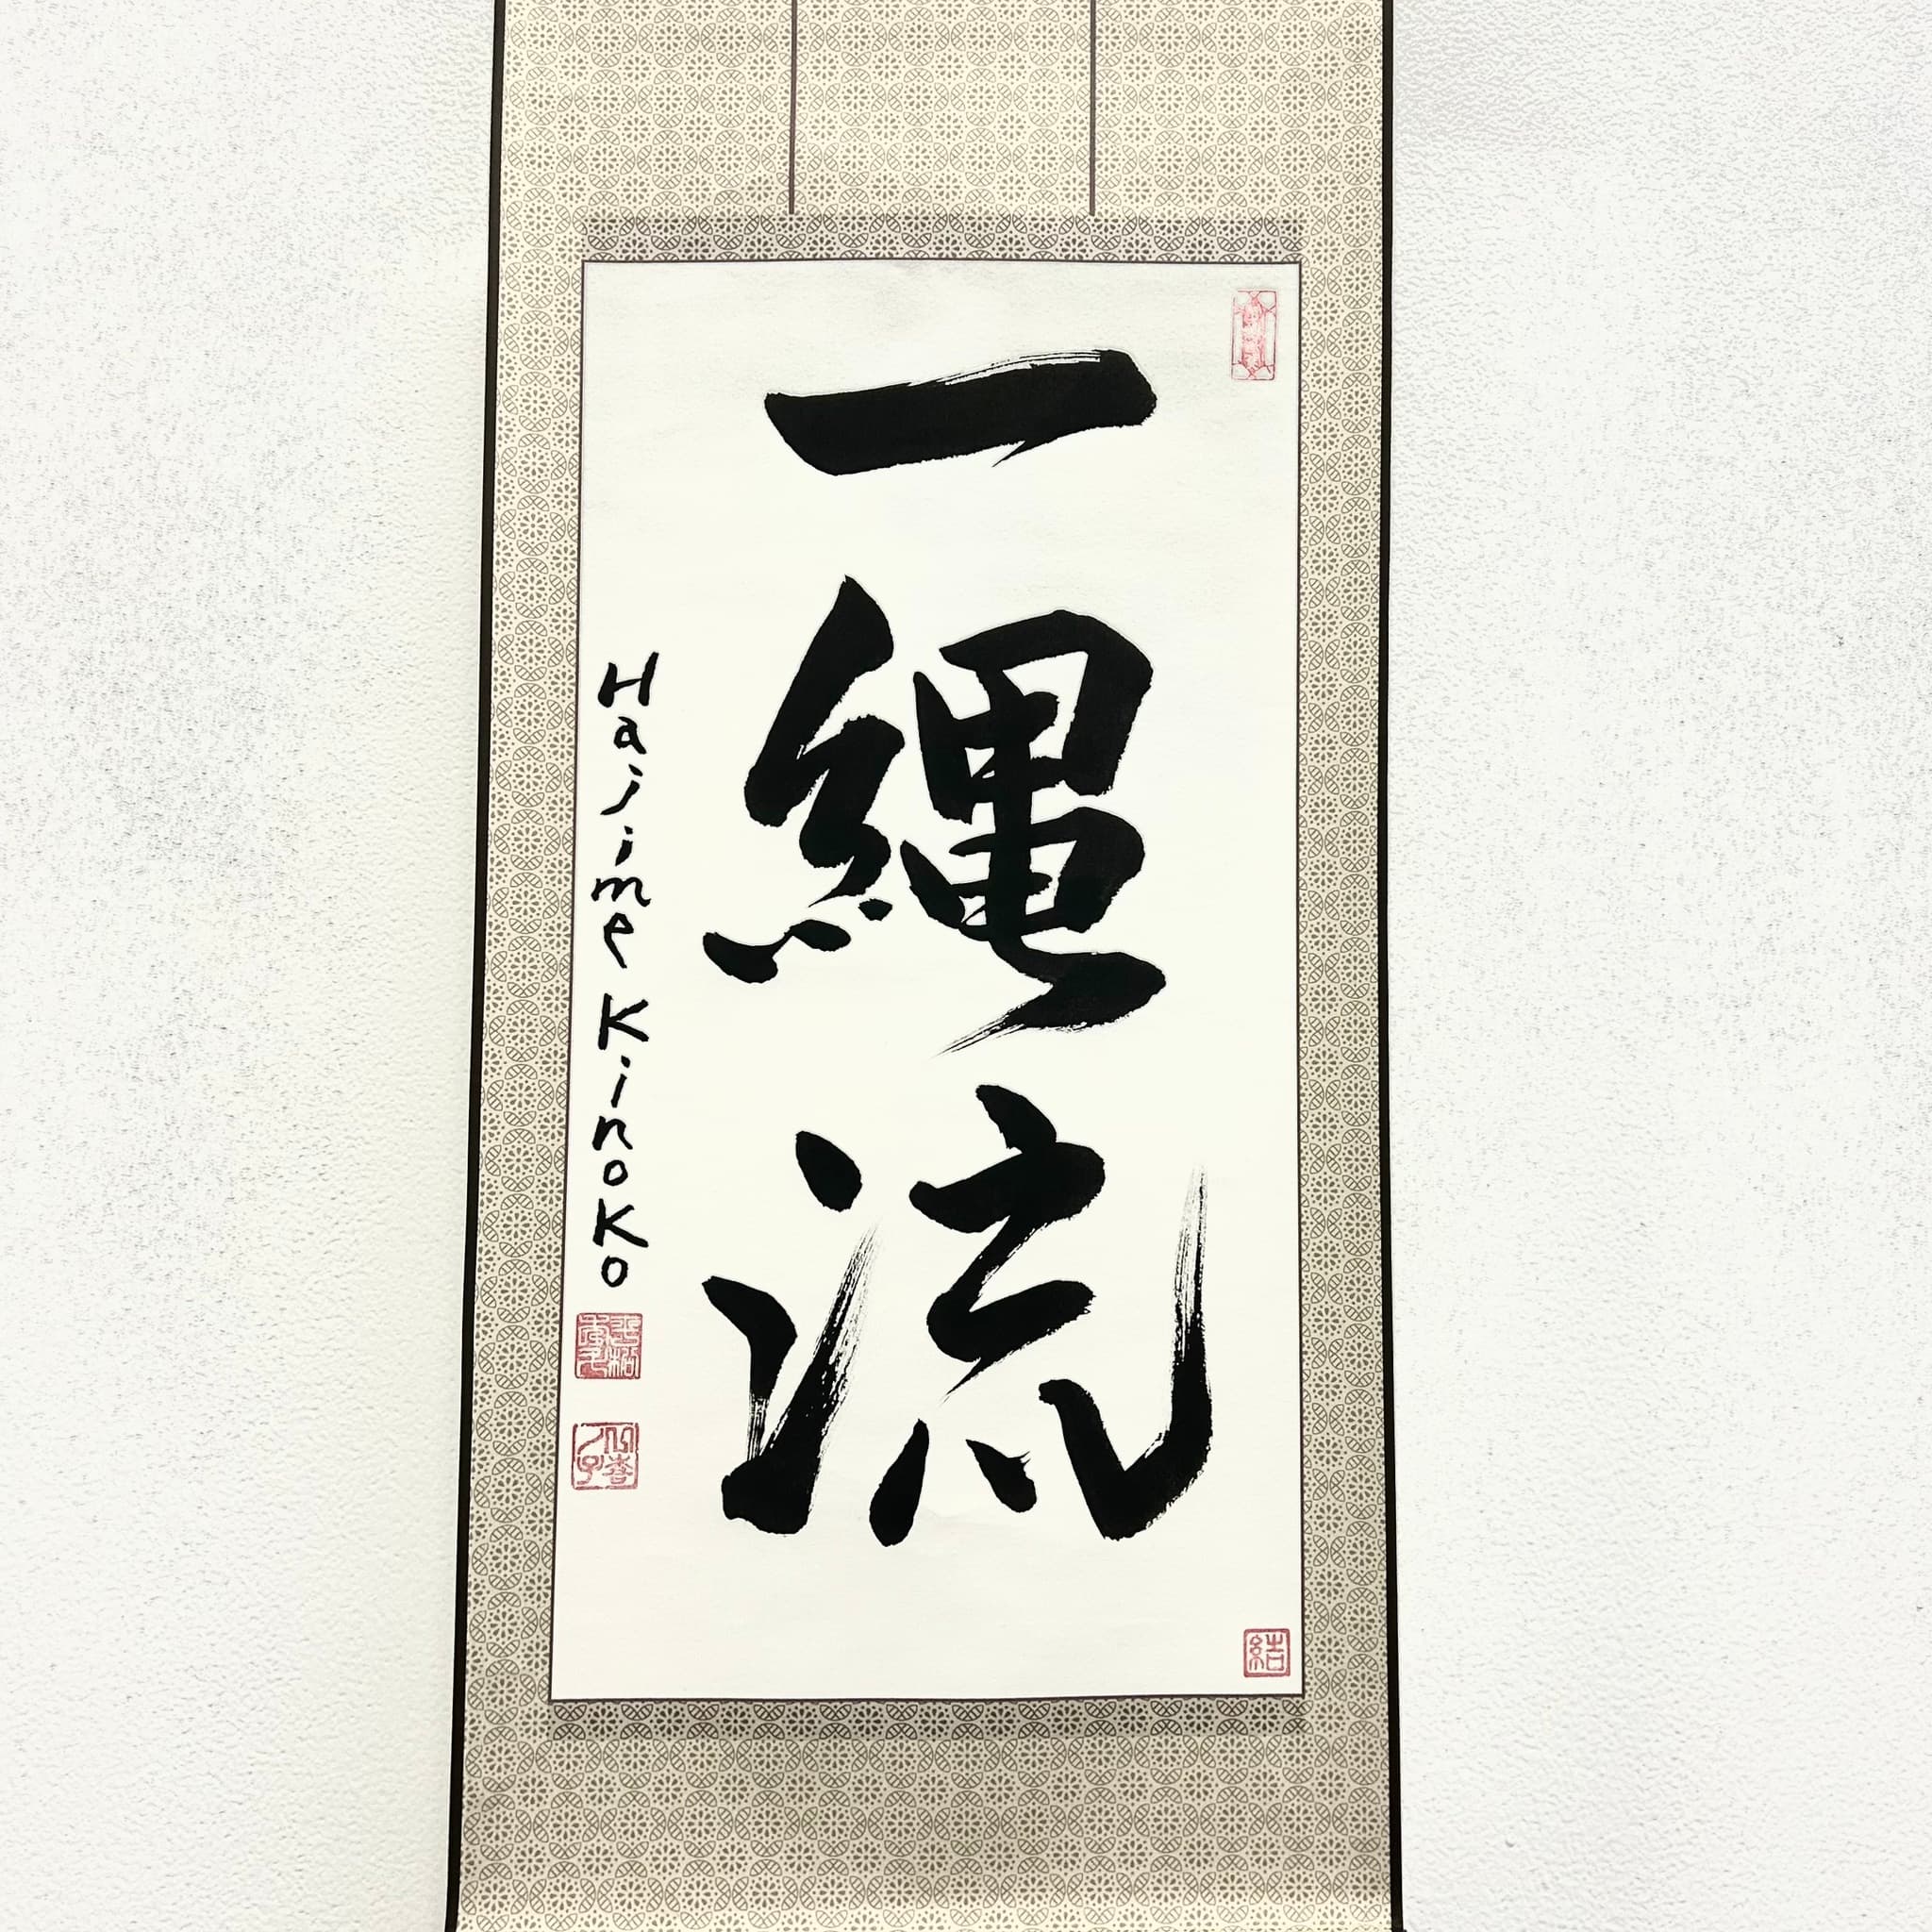 一縄流
Hajime Kinoko
結